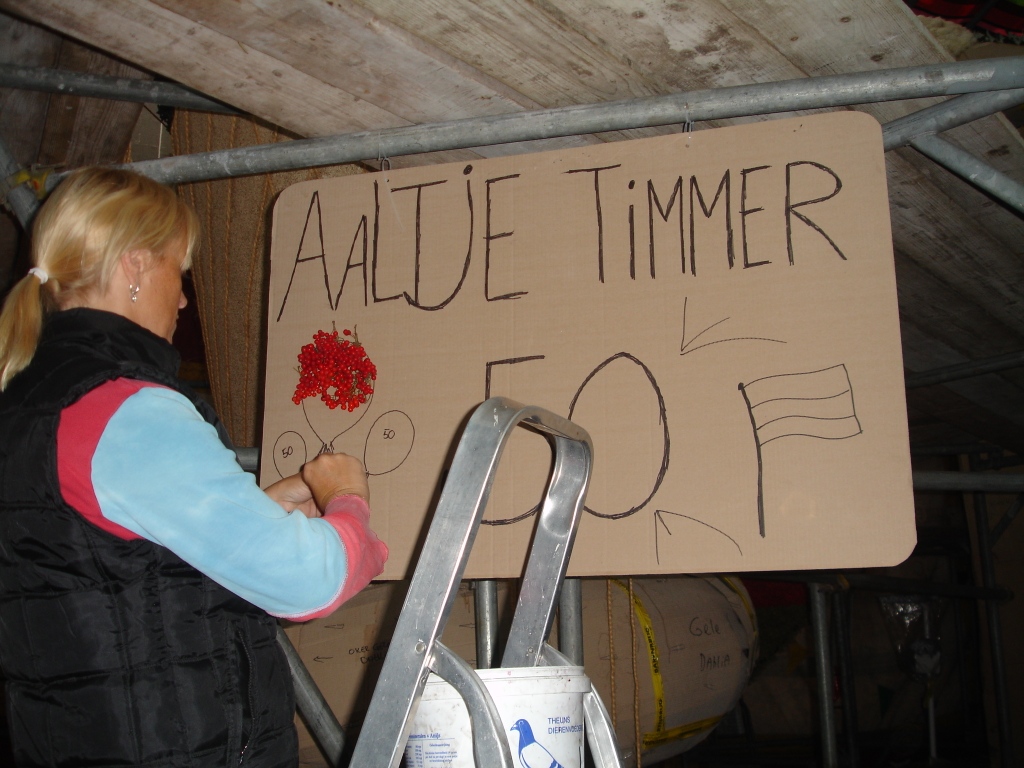 AALTJE TiMMER
50
50
50
THEUNS
Gele
DAHLIA